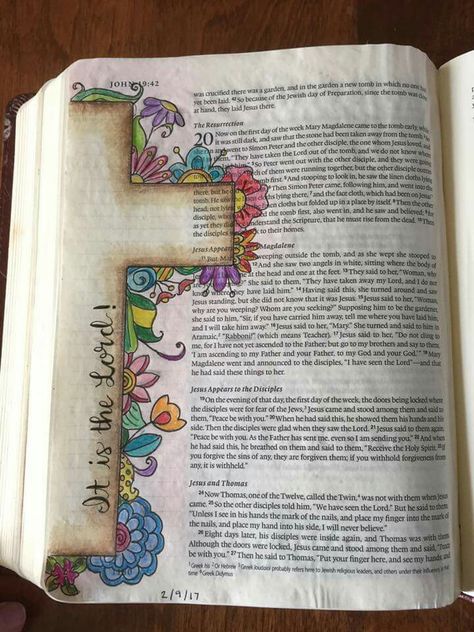 JOHN 19:42
was crucified there was a garden, and in the garden a new tomb in which no one had
yet been laid. 42 So because of the Jewish day of Preparation, since the tomb was close
at hand, they laid Jesus there.
The Resurrection
20 Now on the first day of the week Mary Magdalene came to the tomb early, while
it was still dark, and saw that the stone had been taken away from the tomb.
and went to Simon Peter and the other disciple, the one whom Jesus loved, and
them, "They have taken the Lord out of the tomb, and we do not know where
laid him." So Peter went out with the other disciple, and they were going
of them were running together, but the other disciple outran
tomb first. And stooping to look in, he saw the linen cloths lying
Then Simon Peter came, following him, and went into the
there, but he
tomb. He saw the
cloths lying there, 7 and the face cloth, which had been on Jesus'
head, not lying
linen cloths but folded up in a place by itself. 8 Then the other
disciple, who
the tomb first, also went in, and he saw and believed;
as yet they did
understand the Scripture, that he must rise from the dead. Then
the disciples
to their homes.
Jesus Appears
Magdalene
11 But Mary
weeping outside the tomb, and as she wept she stooped to
And she saw two angels in white, sitting where the body of
at the head and one at the feet. 13 They said to her, "Woman, why
them, "They have taken away my Lord, and I do not
have laid him." 14 Having said this, she turned around and saw
Jesus standing, but she did not know that it was Jesus. 15 Jesus said to her, "Woman,
why are you weeping? Whom are you seeking?" Supposing him to be the gardener,
she said to him, "Sir, if you have carried him away, tell me where you have laid him,
and I will take him away." 16 Jesus said to her, "Mary." She turned and said to him in
Aramaic, "Rabboni!" (which means Teacher). 17 Jesus said to her, "Do not cling to
me, for I have not yet ascended to the Father; but go to my brothers and say to them,
'I am ascending to my Father and your Father, to my God and your God.'" 18 Mary
Magdalene went and announced to the disciples, "I have seen the Lord"—and that
he had said these things to her.
Jesus Appears to the Disciples
19 On the evening of that day, the first day of the week, the doors being locked where
the disciples were for fear of the Jews, Jesus came and stood among them and said to
them, "Peace be with you." 20 When he had said this, he showed them his hands and his
side. Then the disciples were glad when they saw the Lord. 21 Jesus said to them again,
"Peace be with you. As the Father has sent me, even so I am sending you." 22 And when
he had said this, he breathed on them and said to them, "Receive the Holy Spirit. 23 If
you forgive the sins of any, they are forgiven them; if you withhold forgiveness from
any, it is withheld."
Jesus and Thomas
24 Now Thomas, one of the Twelve, called the Twin, was not with them when Jesus
came. 25 So the other disciples told him, "We have seen the Lord." But he said to them,
"Unless I see in his hands the mark of the nails, and place my finger into the mark of
the nails, and place my hand into his side, I will never believe."
26 Eight days later, his disciples were inside again, and Thomas was with them.
Although the doors were locked, Jesus came and stood among them and said, "Peace
be with you." 27 Then he said to Thomas, "Put your finger here, and see my hands; and
1 Greek his 2 Or Hebrew 3 Greek Ioudaioi probably refers here to Jewish religious leaders, and others under their influence, in that
time 4 Greek Didymus
It is the Lord!
2/9/17